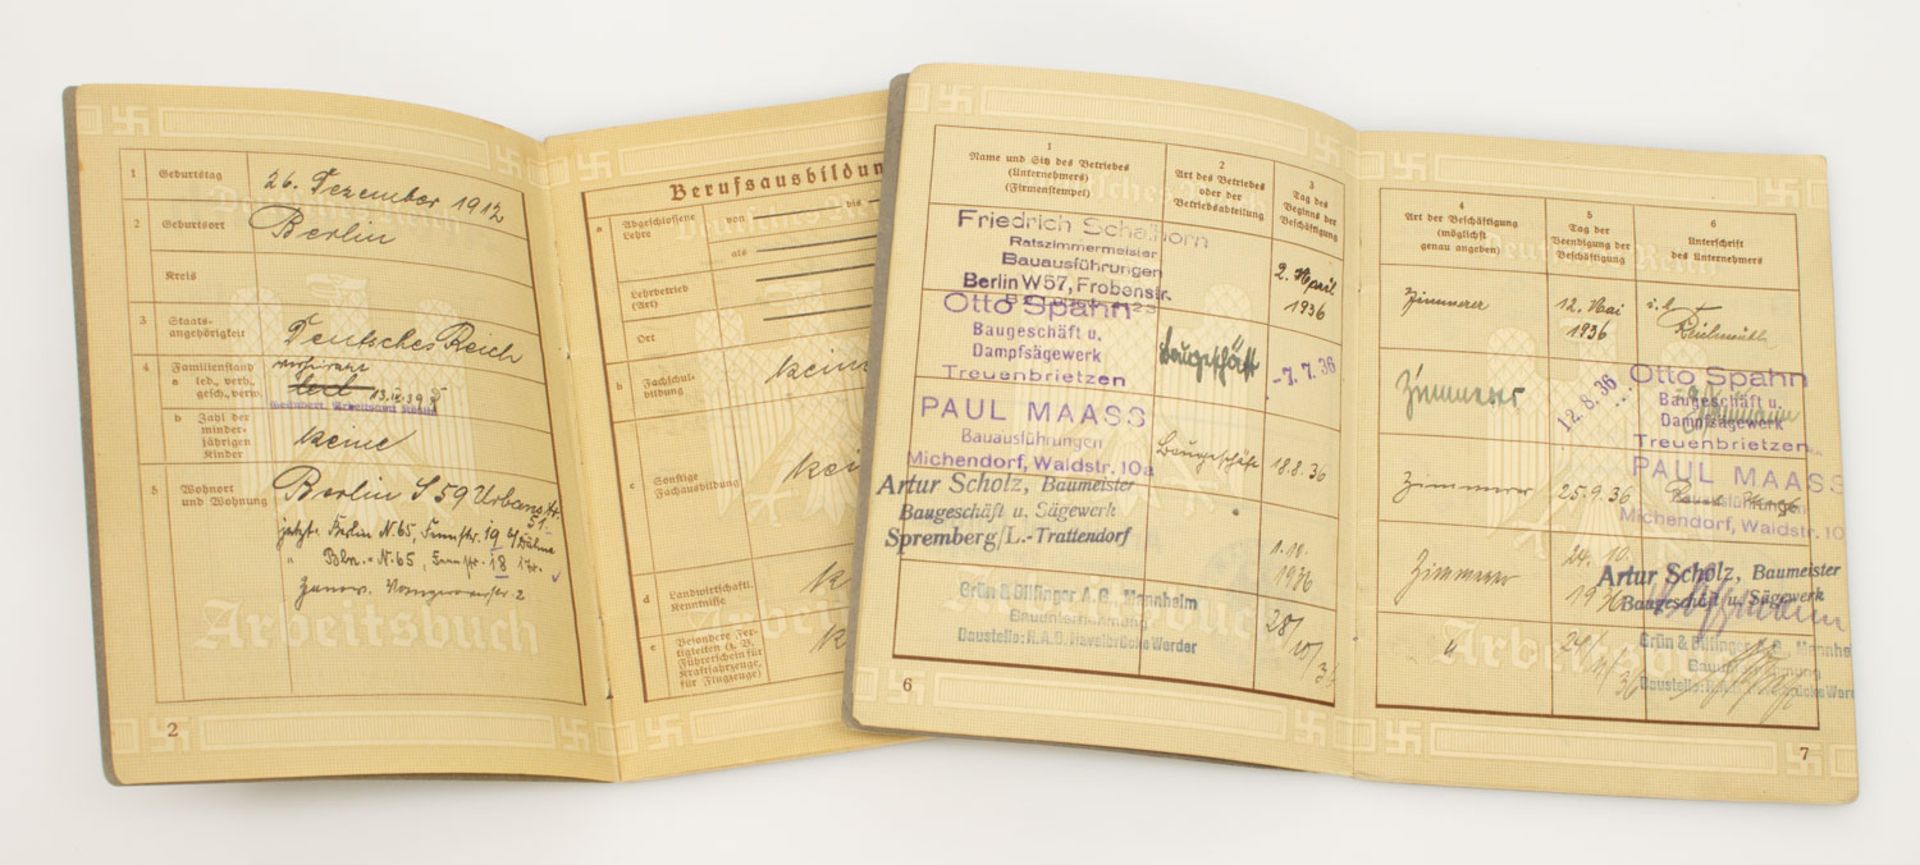 Deutsches Reich
1 Geburtstag 26. Dezember 1912
2 Geburtsort Berlin
Kreis
3 Staats-
angehörigkeit Deutsches Reich
4 Familienstand verheiratet
a led., verh., led 13.IX.39
gesch., verw. Geändert. Arbeitsamt
b Zahl der
minder-
jährigen keine
Kinder
5 Wohnort
und Wohnung Berlin S 59 Urbanstr.
51.
jetzt: Berlin N. 65, 19
" Bln.-N. 65, 18
2
Arbeitsbuch
2
Berufsausbildun
a Abgeschlossene
Lehre
von bis
als
Lehrbetrieb
(Art)
Ort
b Fachschul-
bildung kein
c Sonstige
Fachausbildung kei
d Landwirtschaftl.
Kenntnisse k
e Besondere Fer-
tigkeiten (z. B.
Führerschein für
Kraftfahrzeuge,
für Flugzeuge) k
1
Name und Sitz des Betriebes
(Unternehmers)
(Firmenstempel)
2
Art des Betriebes
oder der
Betriebsabteilung
3
Tag des
Beginns der
Beschäftigung
Friedrich Schalhorn
Ratszimmermeister
Bauausführungen
Berlin W 57, Frobenstr.
2. April
1936
Otto Spahn
Baugeschäft u.
Dampfsägewerk
Treuenbrietzen
Baugeschäft
-7. 7. 36
PAUL MAASS
Bauausführungen
Michendorf, Waldstr. 10a
Baugeschäft
18.8.36
Artur Scholz, Baumeister
Baugeschäft u. Sägewerk
Spremberg/L.-Trattendorf
1.10.
1936
Grün & Bilfinger A.G., Mannheim
Bauunternehmung
Baustelle: R.A.D. Havelbrücke Werder
28/
10/
36
6
4
Art der Beschäftigung
(möglichst
genau angeben)
5
Tag der
Beendigung der
Beschäftigung
6
Unterschrift
des Unternehmers
Zimmerer
12. Mai
1936
Zimmerer
12. 8. 36
Otto Spahn
Baugeschäft u.
Dampfsägewerk
Treuenbrietzen
Zimmerer
25.9.36
PAUL MAASS
Bauausführungen
Michendorf, Waldstr. 10
Zimmerer
24. 10.
1936
Artur Scholz, Baumeister
Baugeschäft u. Sägewerk
"
Grün & Bilfinger A.G., Mannhe
Arbeitsbuch
7